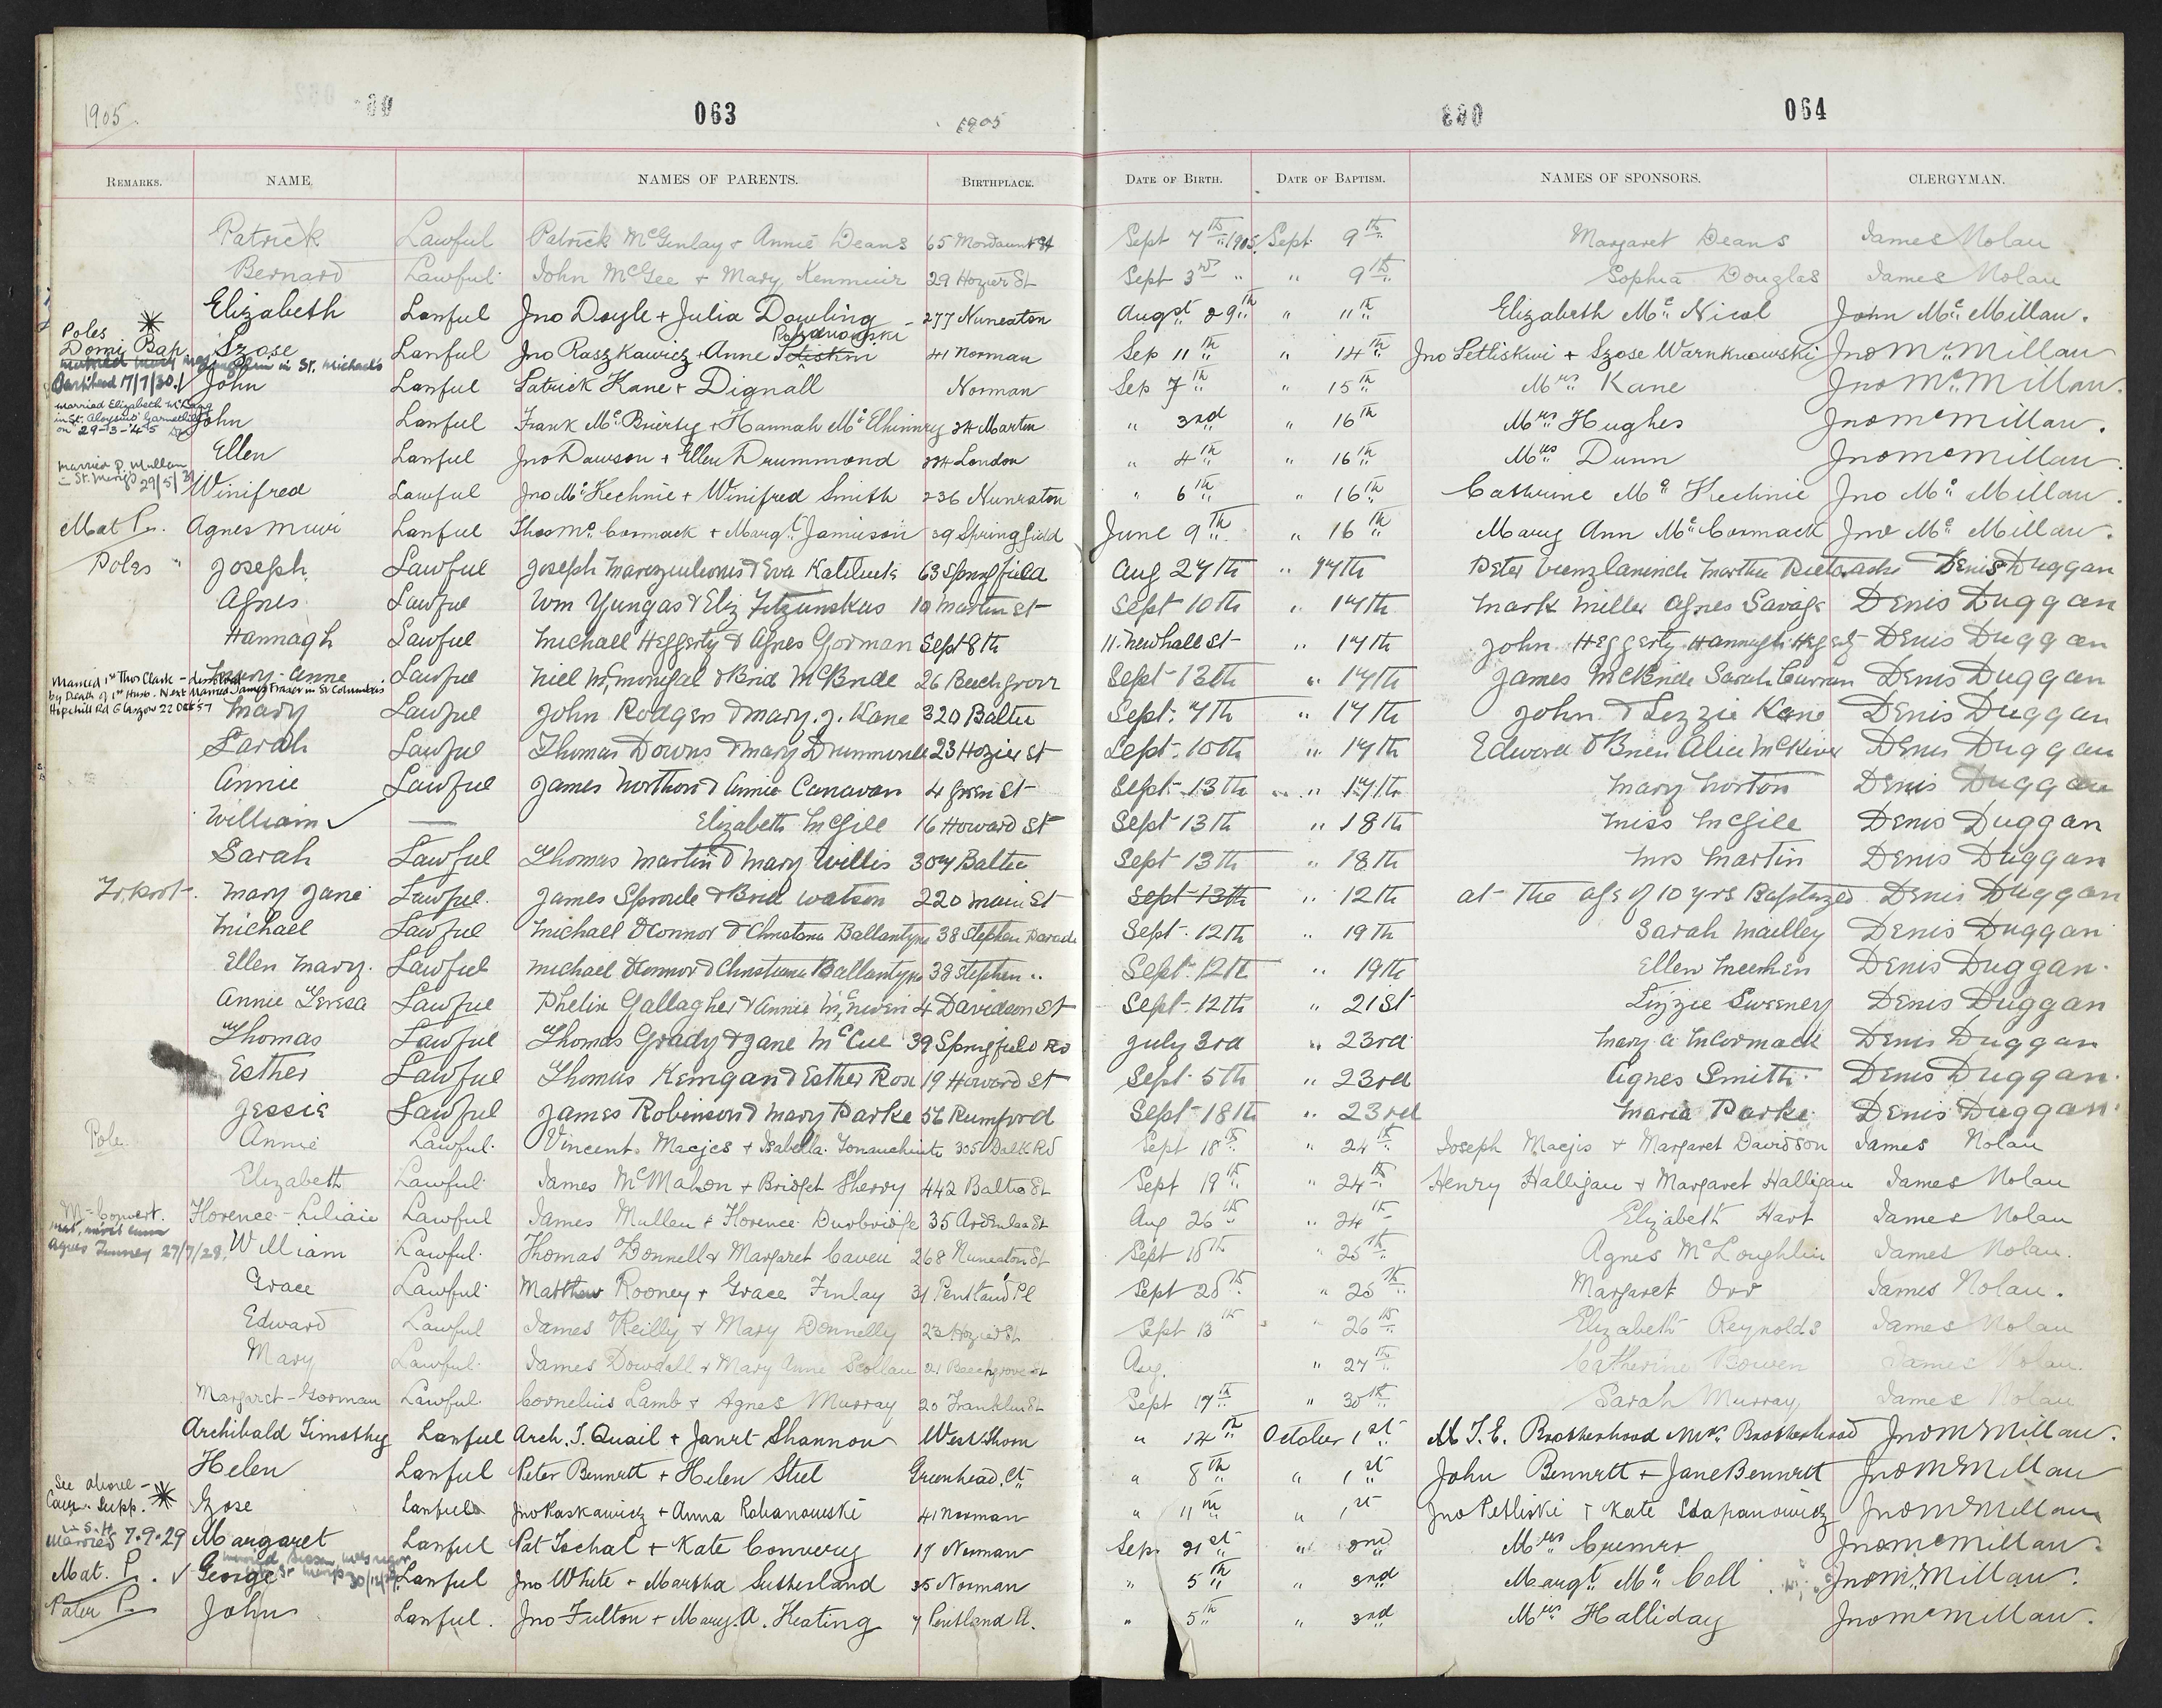 1905.
063
1905
064
REMARKS. NAME. NAMES OF PARENTS. BIRTHPLACE. DATE OF BIRTH. DATE OF BAPTISM. NAMES OF SPONSORS. CLERGYMAN.
Patrick Lawful Patrick McGinlay + Annie Deans 65 Mordaunt St Sept 7th 1905 Sept 9th Margaret Deans James Nolan
Bernard Lawful John McGee + Mary Kenmuir 29 Hozier St Sept 3rd " " 9th Sophia Douglas James Nolan
Elizabeth Lawful Jno Doyle + Julia Dowling 277 Nuneaton Augst 29th " 11th Elizabeth Mc Nicol John Mc Millan.
Poles Szose Lawful Jno Raszkawicz + Anne 41 Norman Sep 11th " 14th Jno Petliskwi + Szose Warnknowski Jno Mc Millan
John Lawful Patrick Kane + Dignall Norman Sep 7th " 15th Mrs Kane Jno Mc Millan.
in St. Michael's
Parkhead 17/7/30.
John Lawful Frank Mc Brierty + Hannah Mc Elhinney 24 Martin " 3rd " 16th Mrs Hughes Jno Mc Millan.
married Elizabeth
in St. Aloysius Garnethill
on 29-3-45
Ellen Lawful Jno Dawson + Ellen Drummond London " 4th " 16th Mrs Dunn Jno Mc Millan.
Married P. Mullan
St. Mary's 29/5/31
Winifred Lawful Jno Mc Kechnie + Winifred Smith 236 Nuneaton " 6th " 16th Cathrine Mc Kechnie Jno Mc Millan.
Mat P. Agnes Lawful Thos Mc Cormack + Margt Jamieson 39 Springfield June 9th " 16th Mary Ann Mc Cormack Jno Mc Millan.
Poles Joseph Lawful Joseph & Eva 63 Springfield Aug 27th " 17th Peter Martha Denis Duggan
Agnes Lawful Wm Yungas & Eliz 19 Martin St Sept 10th " 17th Mark Miller Agnes Savage Denis Duggan
Hannagh Lawful Michael Heggerty & Agnes Gorman Sept 8th 11 Newhall St " 17th John Heggerty Hannagh Denis Duggan
Mary Anne Lawful Niel McMonigal & Brid McBride 26 Beechgrove Sept 13th " 17th James McBride Sarah Curran Denis Duggan
Married 1st Thos Clark -
by Death of 1st Husb. Next Married James Fraser in St Columba's
Hopehill Rd Glasgow 22 Dec 57
Mary Lawful John Rodgers & Mary. J. Kane 320 Baltic Sept. 7th " 17th John & Lizzie Kane Denis Duggan
Sarah Lawful Thomas Downs & Mary Drummond 23 Hozier St Sept. 10th " 17th Edward O'Brien Alice McKiver Denis Duggan
Annie Lawful James Northon & Annie Canavan 4 Green St Sept. 13th " 17th Mary Norton Denis Duggan
William — Elizabeth McGill 16 Howard St Sept 13th " 18th Miss McGill Denis Duggan
Sarah Lawful Thomas Martin & Mary Willis 307 Baltic Sept 13th " 18th Mrs Martin Denis Duggan
Mary Jane Lawful. James Sproule & Brid Watson 220 Main St Sept 13th " 12th at the age of 10 yrs Baptized Denis Duggan
Michael Lawful Michael O'Connor & Christina Ballantyne 38 Stephen Parade Sept. 12th " 19th Sarah Mailley Denis Duggan
Ellen Mary. Lawful Michael O'Connor & Christina Ballantyne 38 Stephen " Sept. 12th " 19th Ellen Meechen Denis Duggan.
Annie Teresa Lawful Phelix Gallagher & Annie 4 Davidson St Sept. 12th " 21st Lizzie Sweeney Denis Duggan
Thomas Lawful Thomas Grady & Jane McCue 39 Springfield Rd July 3rd " 23rd Mary A McCormack Denis Duggan
Esther Lawful Thomas Kernigan & Esther Rose 19 Howard St Sept. 5th " 23rd Agnes Smith Denis Duggan.
Jessie Lawful James Robinson & Mary Parke 56 Rumford Sept 18th " 23rd Maria Parke Denis Duggan.
Pole. Annie Lawful. Vincent Macjes + Isabella 305 Dalk Rd Sept 18th " 24th Joseph Macjis + Margaret Davidson James Nolan
Elizabeth Lawful James McMahon + Bridget Sherry 442 Baltic St Sept 19th " 24th Henry Halligan + Margaret Halligan James Nolan
M-Convert. Florence-Liliaie Lawful James Mullen & Florence Durbridge 35 Ardenlea St Aug 26th " 24th Elizabeth Hart James Nolan
Agnes Tunney 27/7/28. William Lawful. Thomas Donnell & Margaret Caven 268 Nuneaton St Sept 18th " 25th Agnes McLoughlin James Nolan.
Grace Lawful. Matthew Rooney + Grace Finlay 31 Pentland Pl Sept 20th " 25th Margaret Orr James Nolan.
Edward Lawful James Reilly & Mary Donnelly 23 Hozier St Sept 13th " 26th Elizabeth Reynolds James Nolan
Mary Lawful. James Dowdall & Mary Anne Scollan 21 Beechgrove St Aug. " 27th Catherine Bowen James Nolan.
Margaret-Gorman Lawful. Cornelius Lamb & Agnes Murray 20 Franklin St Sept 17th " 30th Sarah Murray James Nolan
Archibald Timothy Lawful Arch. T. Quail + Janet Shannon West Thorn " 14th October 1st M T. E. Brotherhood Mrs Brotherhood Jno Mc Millan.
Helen Lawful Peter Bennett + Helen Steel Greenhead St " 8th " 1st John Bennett + Jane Bennett Jno Mc Millan
See above -
Supp. Szose Lawful Jno Raskawicz + Anna Rabanowski 41 Norman " 11th " 1st Jno Petliski + Kate Stapanowicz Jno Mc Millan
Married 7.9.29 Margaret Lawful Pat Tochal + Kate Convery 17 Norman Sep 21st " 2nd Mrs Jno Mc Millan.
Mat. P. George Lawful Jno White + Martha Sutherland 35 Norman " 5th " 3rd Margt Mc Coll Jno Mc Millan.
Pater P. John Lawful. Jno Fulton + Mary. A. Keating 7 Pentland Pl. " 5th " 3rd Mrs Halliday Jno Mc Millan.